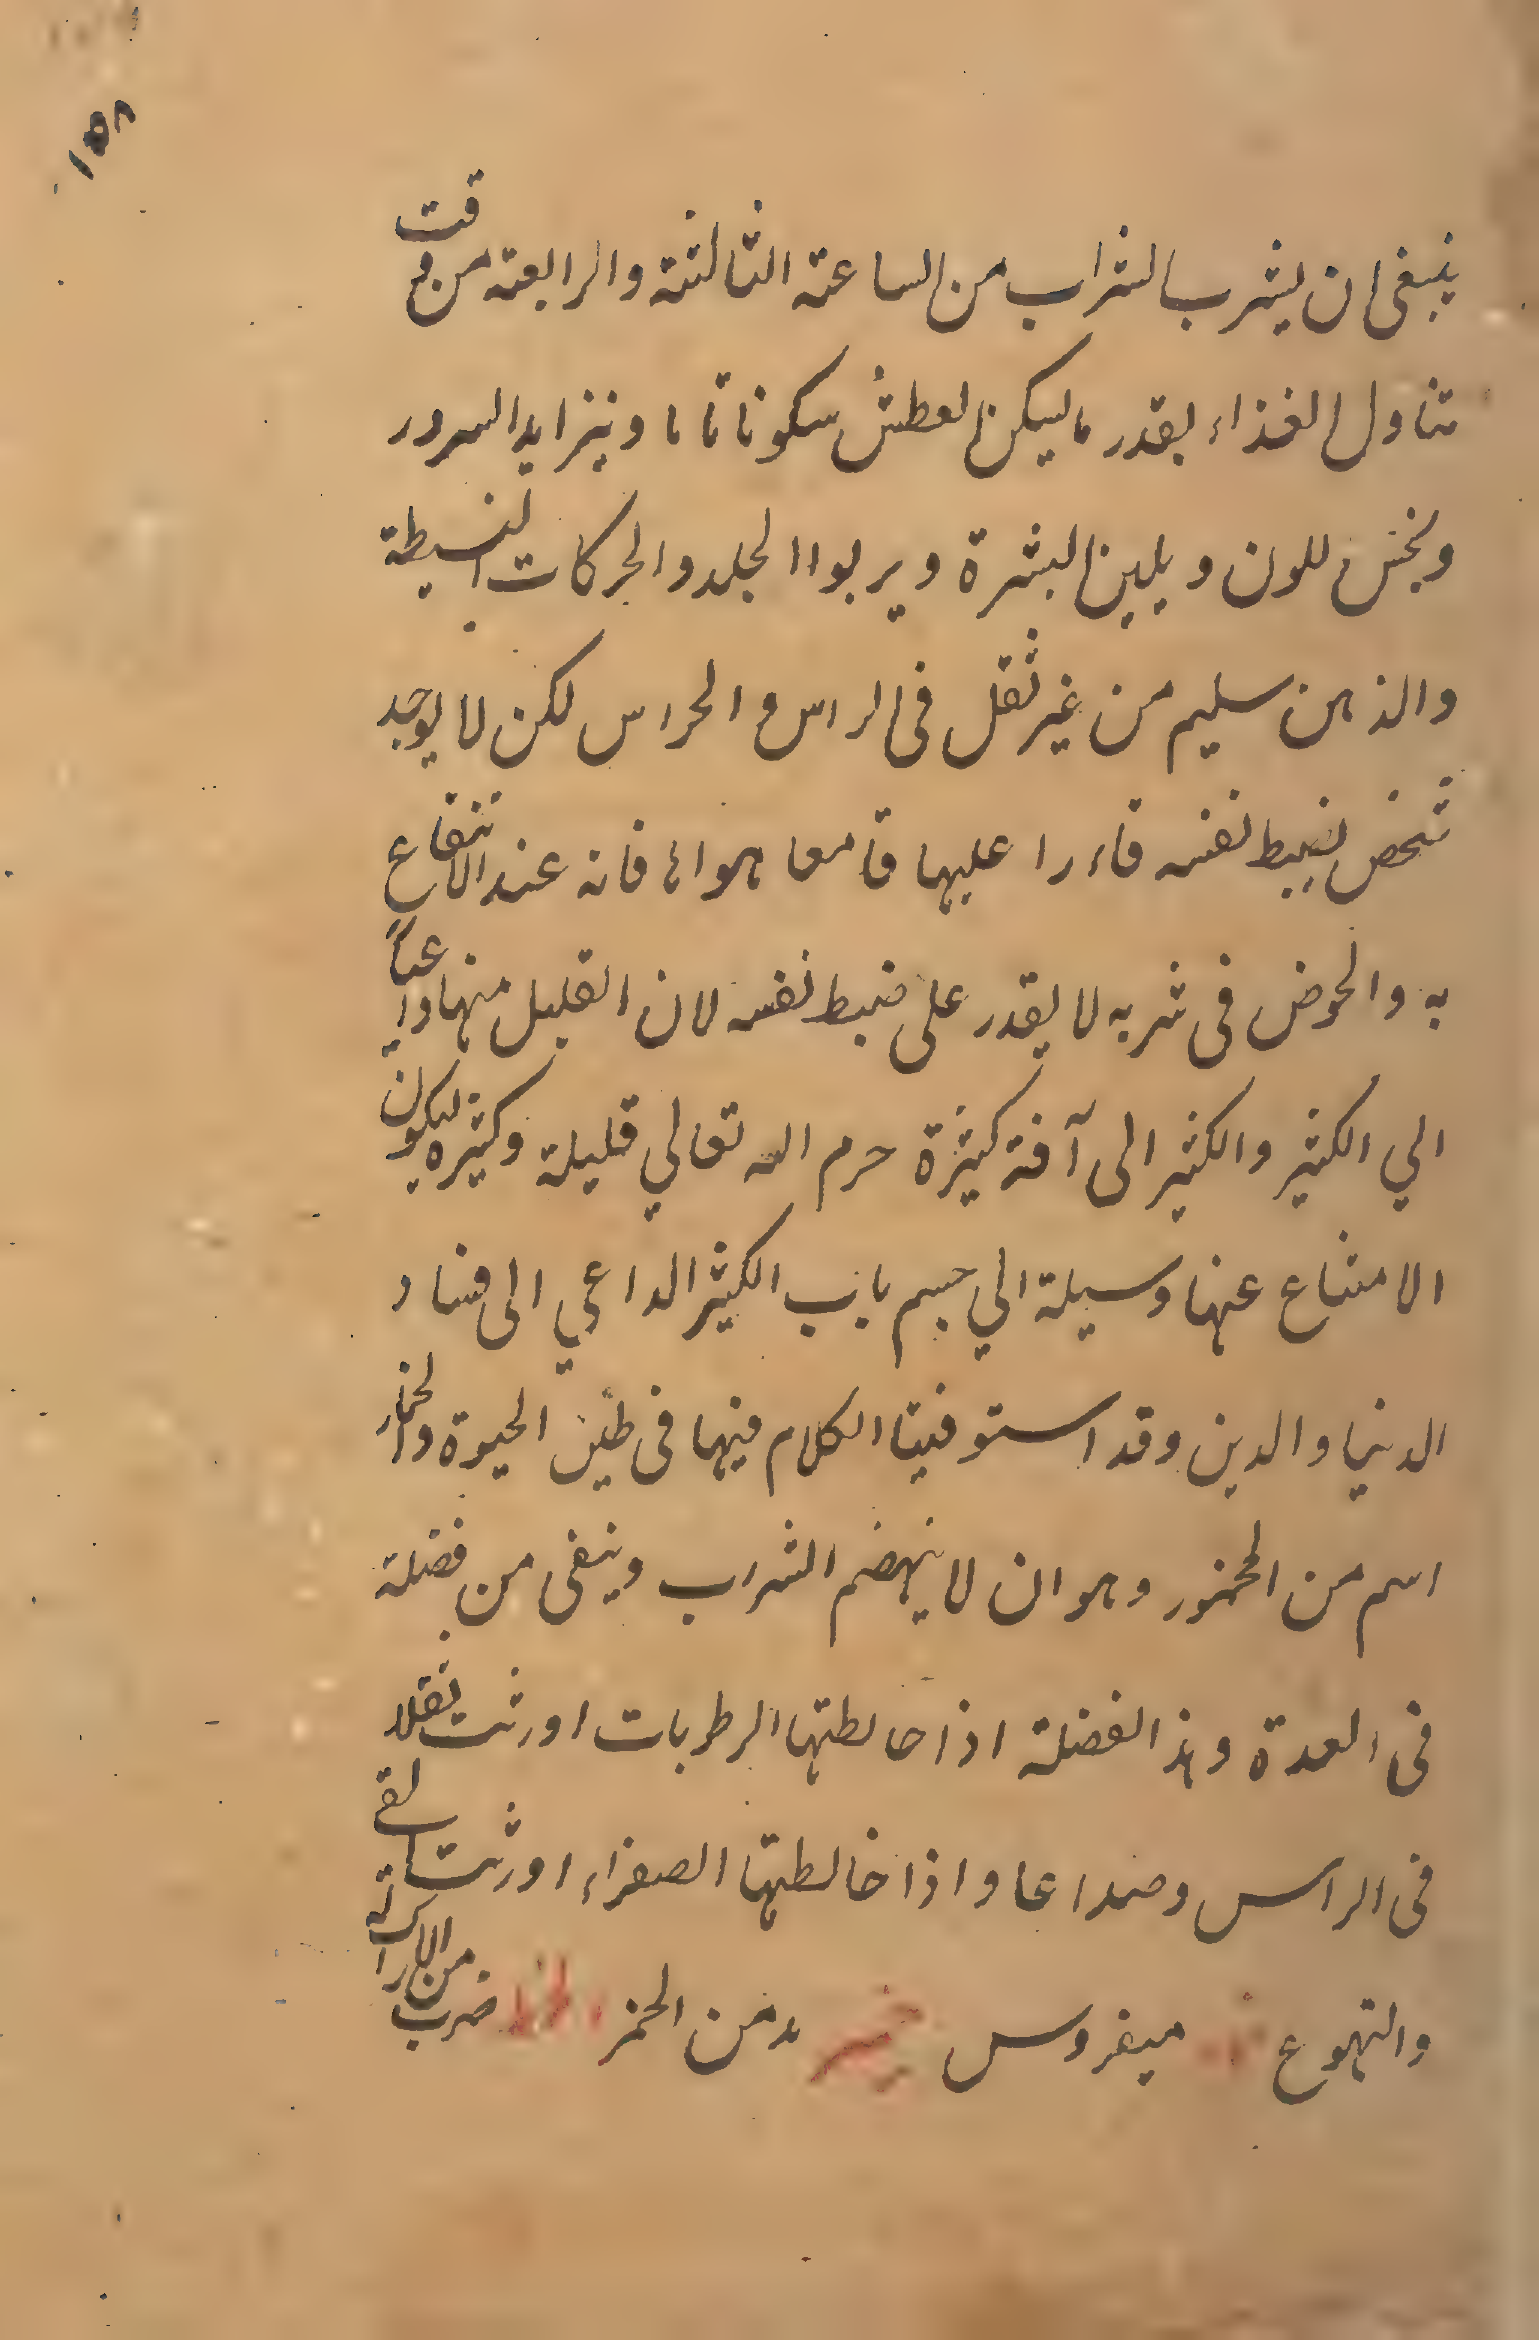 ينبغى ان يشرب الشراب من الساعة الثالثة والرابعة من وقت
تناول الغذاء بقدر ما ليكن العطش سكونا تاما ونيزايد السرور
ويحسن اللون ويلين البشرة ويربوا الجلد والحركات النسيطة
والذهن سليم من غير ثقل فى الراس والحراس لكن لا يوجد
شخص يضبط نفسه قادرا عليها قامعا هواها فانه عند الانتفاع
به والخوض فى شربه لا يقدر على ضبط نفسه لان القليل منها داعيا
الي الكثير والكثير الى آفة كثيرة حرم الله تعالي قليلة وكثيره ليكون
الامتناع عنها وسيلة الي حسم باب الكثير الداعي الى فساد
الدنيا والدين وقد استوفينا الكلام فيها فى طين الحيوة والخمار
اسم من المخمور وهو ان لا ينهضم الشراب ويبقى من فضلة
فى المعدة وهذا الفضلة اذا خالطتها الرطوبات اورثت ثقلا
فى الراس وصداعا واذا خالطتها الصفراء اورثت القى
والتهوع ميفروس خمر من الخمر ضرب من الاراك